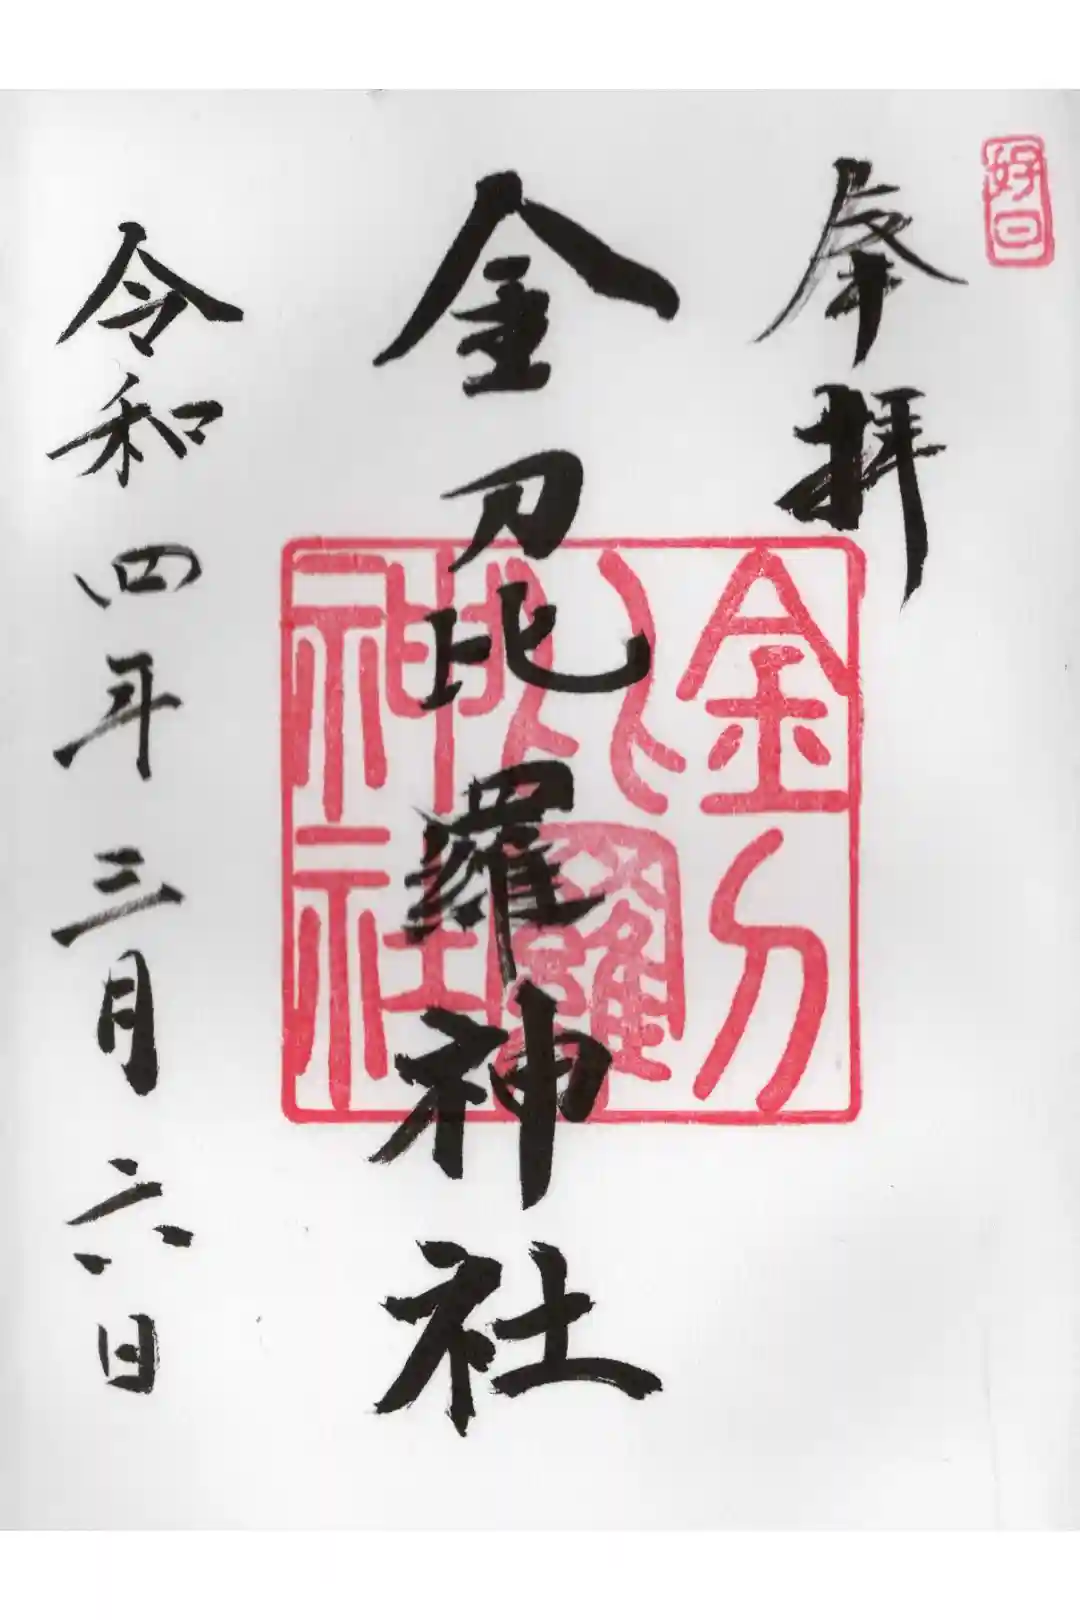 好日
奉拝
金刀比羅神社
金刀
比羅
神社
令和四年三月六日